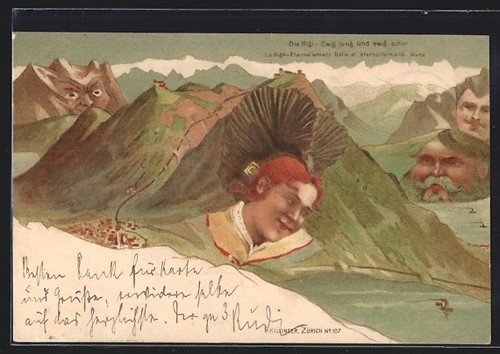 Die Rigi - Ewig jung und ewig schön
La Righi - Eternellement belle et éternellement jeune
Besten Dank für Karte
und Grüße, erwidere selbe
auf das herzlichste. Der
Rudi
KILLINGER, ZÜRICH No 107